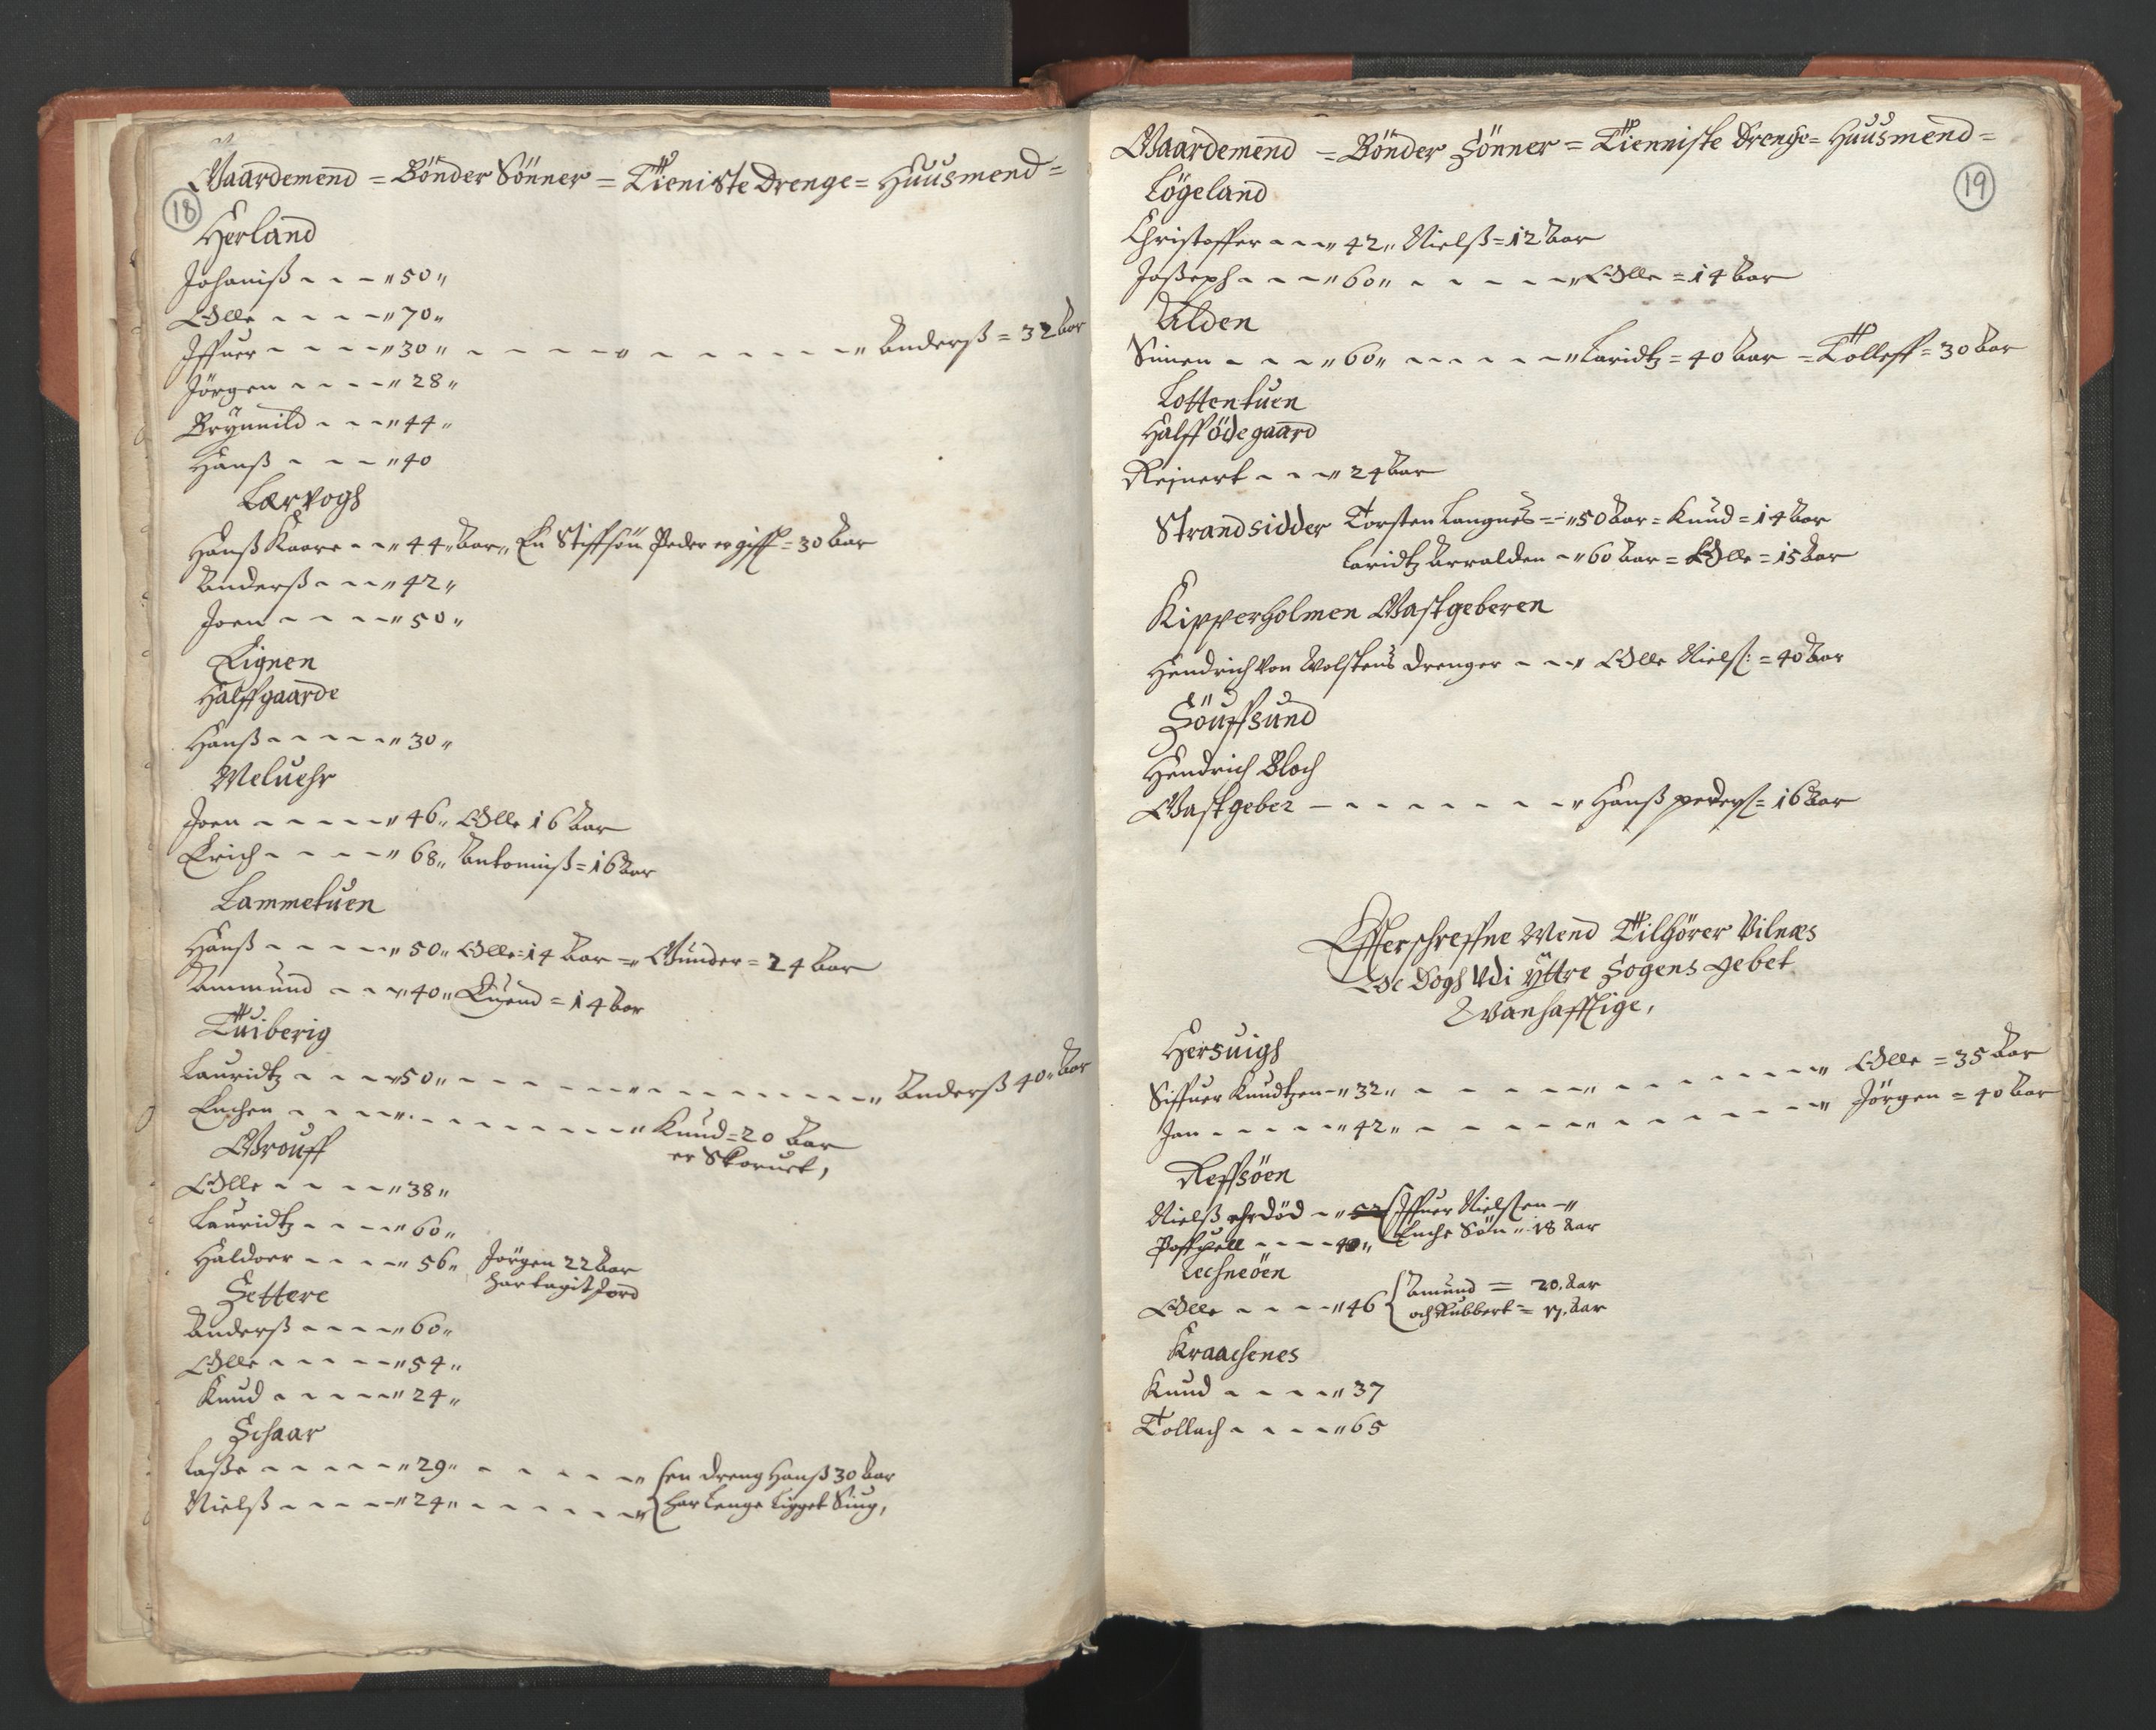 Gaardemend = Bönder Sönner = Tieniste Drenge = Huusmend =
18
Herland
Johaniß - - - 50
Olle - - - - 70
Iffuer - - - - 30 - - - - - - - - - - - Anderß = 32 Aar
Jörgen - - - - 28
Brÿnnild - - - 44
Hanß - - - - 40
Lervogh
Hanß Kaare - - 44 Aar, En Stiffsön Peder er gifft = 30 Aar
Anderß - - - 42
Joen - - - - 50
Tignen
Halffgaarde
Hanß - - - - - 30
Meluehr
Joen - - - - - 46 Olle 16 Aar
Erich - - - - 68 Antoniuß = 16 Aar
Lammetuen
Hanß - - - - - 50 Olle = 14 Aar = Gunder = 24 Aar
Aammund - - - 40 Êuend = 14 Aar
Tuiberig
Lauridtz - - - - 50 - - - - - - - - - - - - - Anderß 40 Aar
Enchen - - - - - - - - - - - - Knud = 20 Aar
er Skoruet,
Grouff
Olle - - - - - 38
Lauridtz - - - - 60
Haldoer - - - - 56 Jörgen 22 Aar
har tagit Jord
Settere
Anderß - - - - 60
Olle - - - - - 54
Knud - - - - - 24
Schaar
Laße - - - - - 29 - - - - - - en dreng Hanß 30 Aar
Nielß - - - - - 24 - - - - - - har Lenge Ligget Siug,
Gaardemend = Bönder Sönner = Tienniste Drenge = Huusmend =
19
Lögeland
Christoffer - - - 42 Nielß = 12 Aar
Joßeph - - - 60 - - - - - Olle = 14 Aar
Alden
Simen - - - 60 - - - - - - Laridtz = 40 Aar = Tolleff = 30 Aar
Lottentuen
Halff öde gaard
Reinert - - - 24 Aar
Strandsidder Torsten Langnes = - 50 Aar = Knud = 14 Aar
Laridtz Arralden - 60 Aar = Olle = 15 Aar
Kipperholmen Gastgeberen
Hendrich Von Wolskens Drenger - - - Olle Nielß: = 40 Aar
Söuffsund
Hendrich Bloch
Gastgeber - - - - - - - - - Hanß pederß = 16 Aar
Effterschreffne Mend Tilhörer Vilnæs
Oc Dogh Udi ÿttre Sogens gebet
Vanhafftige,
Hersuigh
Siffuer Knudtzen - - 32 - - - - - - - - - - - - Olle = 35 Aar
Jan - - - - - 42 - - - - - - - - - - - - Jörgen = 40 Aar
Reffsöen
Nielß ehr död - - 52 Iffuer Nielßen -
Poffuell - - - - 40 Enche Sön 18 Aar
Lechneöen
Olle - - - - 46 Amund = 20. Aar
och Rubbert = 17. Aar
Kraachenes
Knud - - - - - 37
Tollach - - - - 65